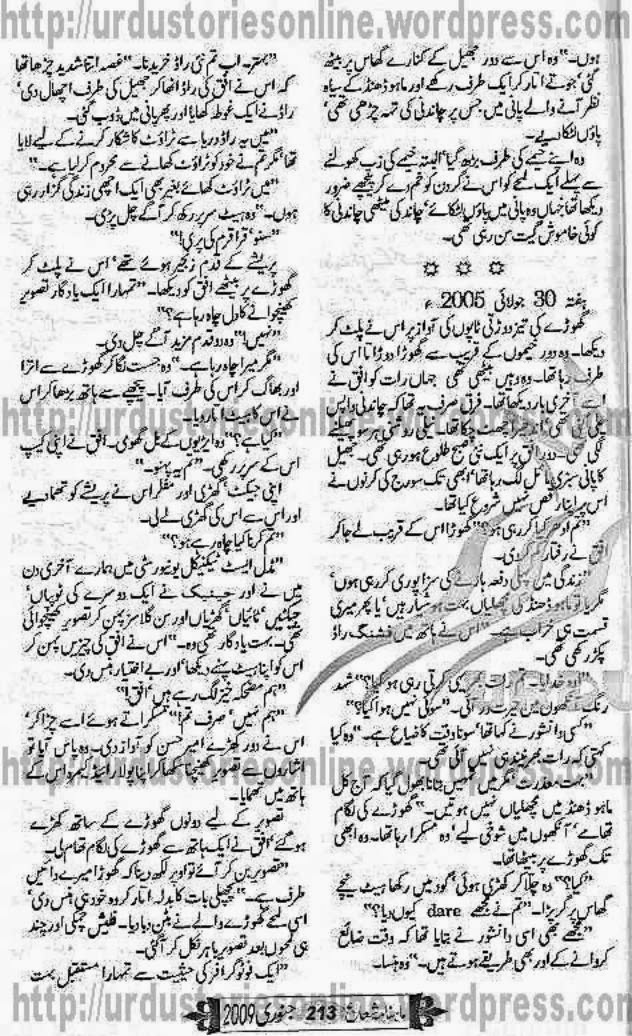 http://urdustoriesonline.wordpress.com
ہوں۔" وہ اس سے دور جھیل کے کنارے گھاس پر بیٹھ
گئی، جوتے اتار کر ایک طرف رکھے اور ماہوڈھنڈ کے سیاہ
نظر آنے والے پانی میں، جس پر چاندنی کی تہہ چڑھی تھی،
پاؤں لٹکا دیے۔
وہ اپنے خیمے کی طرف بڑھ گیا، البتہ خیمے کی زپ کھولنے
سے پہلے ایک لمحے کو اس نے گردن کو خم دے کر پیچھے ضرور
دیکھا تھا جہاں وہ پانی میں پاؤں لٹکائے، چاند کی میٹھی چاندنی کا
کوئی خاموش گیت سن رہی تھی۔
ہفتہ 30 جولائی 2005ء
گھوڑے کی تیز دوڑتی ٹاپوں کی آواز پر اس نے پلٹ کر
دیکھا۔ وہ دور خیموں کے قریب سے گھوڑا دوڑاتا اس کی
طرف آ رہا تھا۔ وہ وہیں بیٹھی تھی جہاں رات کو افق نے
اسے آخری بار دیکھا تھا۔ فرق صرف یہ تھا کہ چاندنی واپس
چلی گئی تھی، اندھیرا چھٹ چکا تھا۔ نیلی روشنی ہر سو پھیلنے
لگی تھی۔ دور افق پر ایک نئی صبح طلوع ہو رہی تھی۔ جھیل
کا پانی سبزی مائل لگ رہا تھا، ابھی تک سورج کی کرنوں نے
اس پر اپنا رقص نہیں شروع کیا تھا۔
"تم ادھر کیا کر رہی ہو؟" گھوڑا اس کے قریب لے جا کر
افق نے رفتار کم کر دی۔
"زندگی میں پہلی دفعہ ہارنے کی سزا پوری کر رہی ہوں،
مگر یا تو ماہوڈھنڈ کی مچھلیاں بہت ہوشیار ہیں، یا پھر میری
قسمت ہی خراب ہے۔" اس نے ہاتھ میں فشنگ راڈ
پکڑ رکھی تھی۔
"اوہ خدایا۔ تم رات بھر یہی کرتی رہی ہو کیا؟" شہد
رنگ آنکھوں میں حیرت در آئی۔ "سوئی نہیں ہو کیا؟"
"کسی دانشور نے کہا تھا، سونا وقت کا ضیاع ہے۔" وہ کیا
کہتی کہ رات بھر نیند ہی نہیں آئی تھی۔
"بہت معذرت مگر میں تمہیں بتانا بھول گیا کہ آج کل
ماہوڈھنڈ میں مچھلیاں نہیں ہوتیں۔" گھوڑے کی لگام
تھامے، آنکھوں میں شوخی لیے، وہ مسکرا رہا تھا۔ وہ ابھی
تک گھوڑے پر بیٹھا تھا۔
"کیا؟" وہ چلّا کر کھڑی ہوئی، گود میں رکھا ہیٹ نیچے
گھاس پر گر پڑا۔ "تم نے مجھے dare کیوں دیا؟"
"مجھے بھی اسی دانشور نے بتایا تھا کہ وقت ضائع
کروانے کے اور بھی طریقے ہوتے ہیں۔" وہ ہنسا۔
"بہتر۔ اب تم نئی راڈ خریدنا۔" غصہ اتنا شدید چڑھا تھا
کہ اس نے افق کی راڈ اٹھا کر جھیل کی طرف اچھال دی،
راڈ نے ایک غوطہ کھایا اور پھر پانی میں ڈوب گئی۔
"میں یہ راڈ دریا سے ٹراؤٹ کا شکار کرنے کے لیے لایا
تھا، مگر تم نے خود کو ٹراؤٹ کھانے سے محروم کر لیا ہے۔"
"میں ٹراؤٹ کھائے بغیر بھی ایک اچھی زندگی گزار رہی
ہوں۔" وہ ہیٹ سر پر رکھ کر آگے چل پڑی۔
"سنو، قراقرم کی پری!"
پریشے کے قدم زنجیر ہوئے تھے، اس نے پلٹ کر
گھوڑے پر بیٹھے افق کو دیکھا۔ "تمہارا ایک یادگار تصویر
کھینچوانے کا دل چاہ رہا ہے؟"
"نہیں!" وہ دو قدم مزید آگے چل دی۔
"مگر میرا چاہ رہا ہے۔" وہ جست لگا کر گھوڑے سے اترا
اور بھاگ کر اس کی طرف آیا۔ پیچھے سے ہاتھ بڑھا کر اس
نے اس کا ہیٹ اتار دیا۔
"کیا ہے؟" وہ ایڑیوں کے بل گھومی۔ افق نے اپنی کیپ
اس کے سر پر رکھی۔ "تم یہ پہنو۔"
اپنی جیکٹ، گھڑی اور مفلر اس نے پریشے کو تھما دیے
اور اس سے اس کی گھڑی لے لی۔
"تم کرنا کیا چاہ رہے ہو؟"
"مڈل ایسٹ ٹیکنیکل یونیورسٹی میں ہمارے آخری دن
میں نے اور جینیک نے ایک دوسرے کی ٹوپیاں،
جیکٹیں، ٹائیاں، گھڑیاں اور سن گلاسز پہن کر تصویر کھینچوائی
تھی۔ بہت یادگار تھی وہ۔" اس نے افق کی چیزیں پہن کر
اس کو اپنا ہیٹ پہنے دیکھا، اور بے اختیار ہنس دی۔
"ہم مضحکہ خیز لگ رہے ہیں، افق!"
"ہم نہیں، صرف تم!" مسکراتے ہوئے اسے چڑا کر،
اس نے دور کھڑے امیر حسن کو آواز دی۔ وہ پاس آیا تو
اشاروں سے تصویر کھینچنا سکھا کر اپنا پولارائیڈ کیمرہ اس کے
ہاتھ میں تھمایا۔
تصویر کے لیے دونوں گھوڑے کے ساتھ کھڑے
ہو گئے، افق نے ایک ہاتھ سے گھوڑے کی لگام تھام لی۔
"تصویر بن کر آئے تو اوپر لکھ دینا کہ گھوڑا میرے دائیں
طرف ہے۔" پچھلی بات کا بدلہ اتار کر وہ خود ہی ہنس دی،
اسی لمحے گھوڑے والے نے بٹن دبا دیا۔ فلیش چمکی اور چند
ہی لمحوں بعد تصویر باہر نکل کر آ گئی۔
"ایک فوٹوگرافر کی حیثیت سے تمہارا مستقبل بہت
http://urdustoriesonline.wordpress.com
http://urdustoriesonline.wordpress.com
ماہنامہ شعاع 213 جنوری 2009
http://urdustoriesonline.wordpress.com